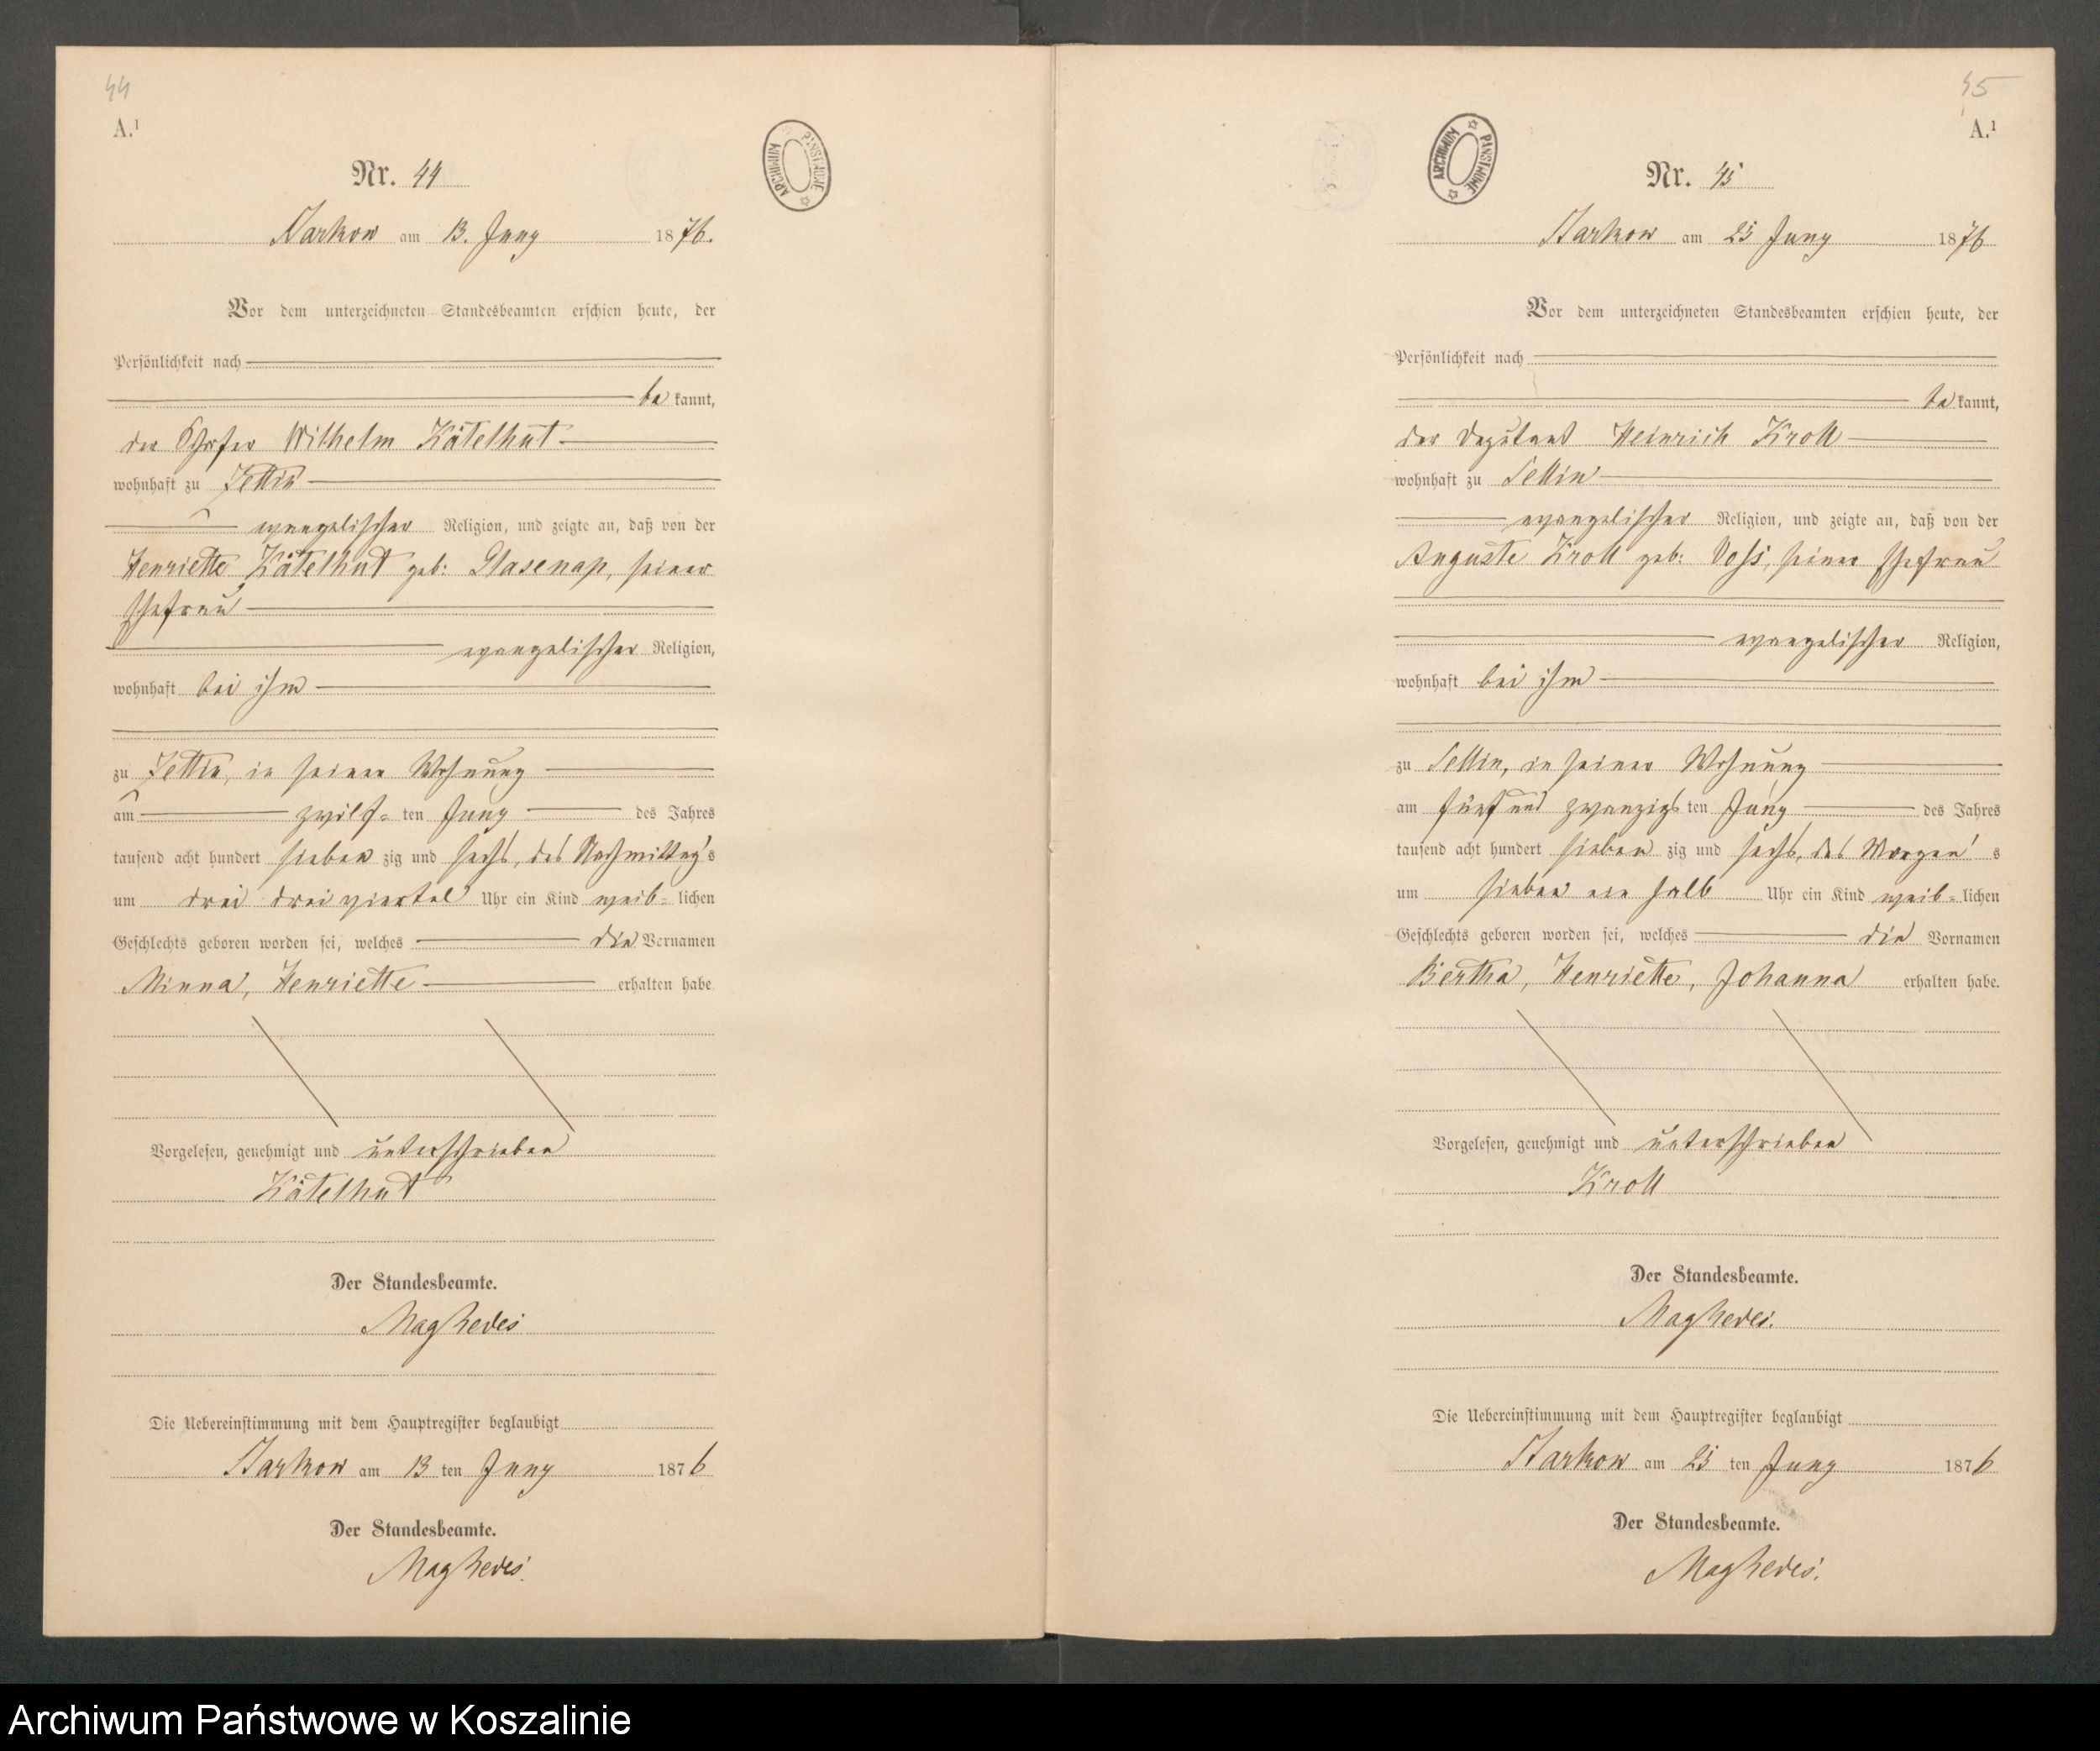 44
A.¹
Nr. 44
Starkow am 13. Juny 1876.
Vor dem unterzeichneten Standesbeamten erschien heute, der
Persönlichkeit nach
be kannt,
der Schäfer Wilhelm Kätelhut
wohnhaft zu Zettin
evangelischer Religion, und zeigte an, daß von der
Henriette Kätelhut geb: Glasenap, seiner
Ehefrau
evangelischer Religion,
wohnhaft bei ihm
zu Zettin, in seiner Wohnung
am zwölf= ten Juny des Jahres
tausend acht hundert sieben zig und sechs, des Nachmittag's
um drei dreiviertel Uhr ein Kind weib= lichen
Geschlechts geboren worden sei, welches die Vornamen
Minna, Henriette erhalten habe
Vorgelesen, genehmigt und unterschrieben
Kätelhut
Der Standesbeamte.
Die Uebereinstimmung mit dem Hauptregister beglaubigt
Starkow am 13 ten Juny 1876
Der Standesbeamte.
ARCHIWUM PAŃSTWOWE
45
A.¹
Nr. 45
Starkow am 25 Juny 1876
Vor dem unterzeichneten Standesbeamten erschien heute, der
Persönlichkeit nach
be kannt,
der Deputant Heinrich Kroll
wohnhaft zu Sellin
evangelischer Religion, und zeigte an, daß von der
Auguste Kroll geb: Voß, seiner Ehefrau
evangelischer Religion,
wohnhaft bei ihm
zu Sellin, in seiner Wohnung
am fünf und zwanzigs ten Juny des Jahres
tausend acht hundert sieben zig und sechs, des Morgen's
um sieben ein halb Uhr ein Kind weib= lichen
Geschlechts geboren worden sei, welches die Vornamen
Bertha, Henriette, Johanna erhalten habe.
Vorgelesen, genehmigt und unterschrieben
Kroll
Der Standesbeamte.
Die Uebereinstimmung mit dem Hauptregister beglaubigt
Starkow am 25 ten Juny 1876
Der Standesbeamte.
ARCHIWUM PAŃSTWOWE
Archiwum Państwowe w Koszalinie